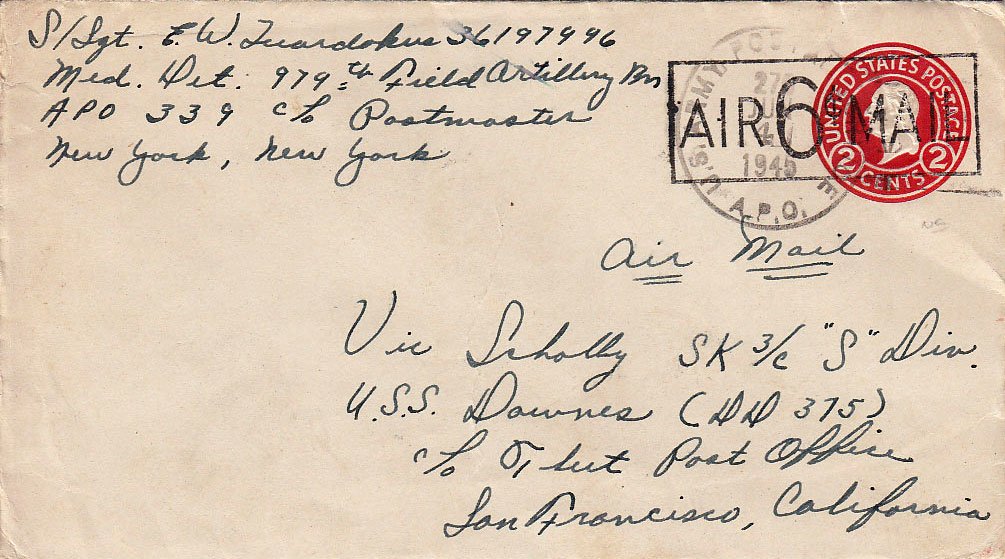 S/Sgt. E. W. Tuardokus 36197996
Med. Det. 979th Field Artillery Bn
APO 339 c/o Postmaster
New York, New York
U.S. ARMY POSTAL
1945
A.P.O.
AIR 6¢ MAIL
UNITED STATES POSTAGE
2 CENTS 2
Air Mail
Vic Scholly SK 3/c "S" Div.
U.S.S. Downes (DD 375)
c/o Fleet Post Office
San Francisco, California